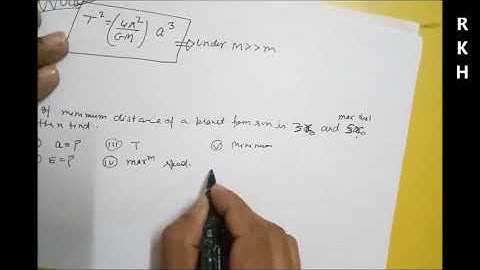 T² = (4π²/GM) a³
⇒ under M>>m
R
K
H
If minimum distance of a planet from sun is 3x₀ and 5x₀
max dist
then find.
a=? (iii) T (v) minimum
E=? (iv) maxᵐ speed.